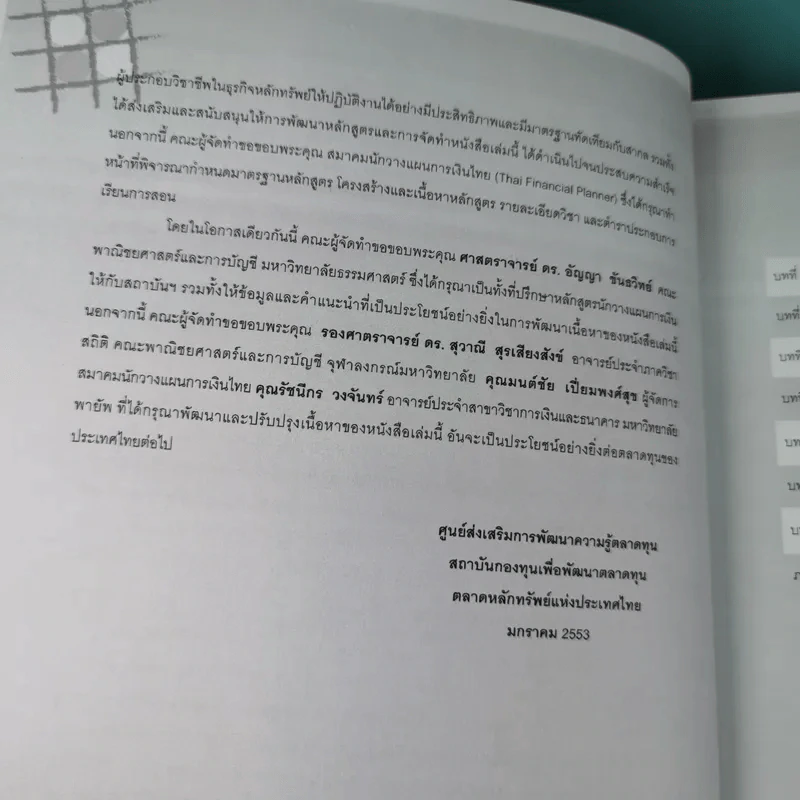 ผู้ประกอบวิชาชีพในธุรกิจหลักทรัพย์ให้ปฏิบัติงานได้อย่างมีประสิทธิภาพและมีมาตรฐานทัดเทียมกับสากล รวมทั้ง
ได้ส่งเสริมและสนับสนุนให้การพัฒนาหลักสูตรและการจัดทำหนังสือเล่มนี้ ได้ดำเนินไปจนประสบความสำเร็จ
นอกจากนี้ คณะผู้จัดทำขอขอบพระคุณ สมาคมนักวางแผนการเงินไทย (Thai Financial Planner) ซึ่งได้กรุณาทำ
หน้าที่พิจารณากำหนดมาตรฐานหลักสูตร โครงสร้างและเนื้อหาหลักสูตร รายละเอียดวิชา และตำราประกอบการ
เรียนการสอน
โดยในโอกาสเดียวกันนี้ คณะผู้จัดทำขอขอบพระคุณ ศาสตราจารย์ ดร. อัญญา ขันธวิทย์ คณะ
พาณิชยศาสตร์และการบัญชี มหาวิทยาลัยธรรมศาสตร์ ซึ่งได้กรุณาเป็นทั้งที่ปรึกษาหลักสูตรนักวางแผนการเงิน
ให้กับสถาบันฯ รวมทั้งให้ข้อมูลและคำแนะนำที่เป็นประโยชน์อย่างยิ่งในการพัฒนาเนื้อหาของหนังสือเล่มนี้
นอกจากนี้ คณะผู้จัดทำขอขอบพระคุณ รองศาตราจารย์ ดร. สุวาณี สุรเสียงสังข์ อาจารย์ประจำภาควิชา
สถิติ คณะพาณิชยศาสตร์และการบัญชี จุฬาลงกรณ์มหาวิทยาลัย คุณมนต์ชัย เปี่ยมพงศ์สุข ผู้จัดการ
สมาคมนักวางแผนการเงินไทย คุณรัชนีกร วงจันทร์ อาจารย์ประจำสาขาวิชาการเงินและธนาคาร มหาวิทยาลัย
พายัพ ที่ได้กรุณาพัฒนาและปรับปรุงเนื้อหาของหนังสือเล่มนี้ อันจะเป็นประโยชน์อย่างยิ่งต่อตลาดทุนของ
ประเทศไทยต่อไป
ศูนย์ส่งเสริมการพัฒนาความรู้ตลาดทุน
สถาบันกองทุนเพื่อพัฒนาตลาดทุน
ตลาดหลักทรัพย์แห่งประเทศไทย
มกราคม 2553
บทที่
บทที่
บทที่
บทที่
บทที่